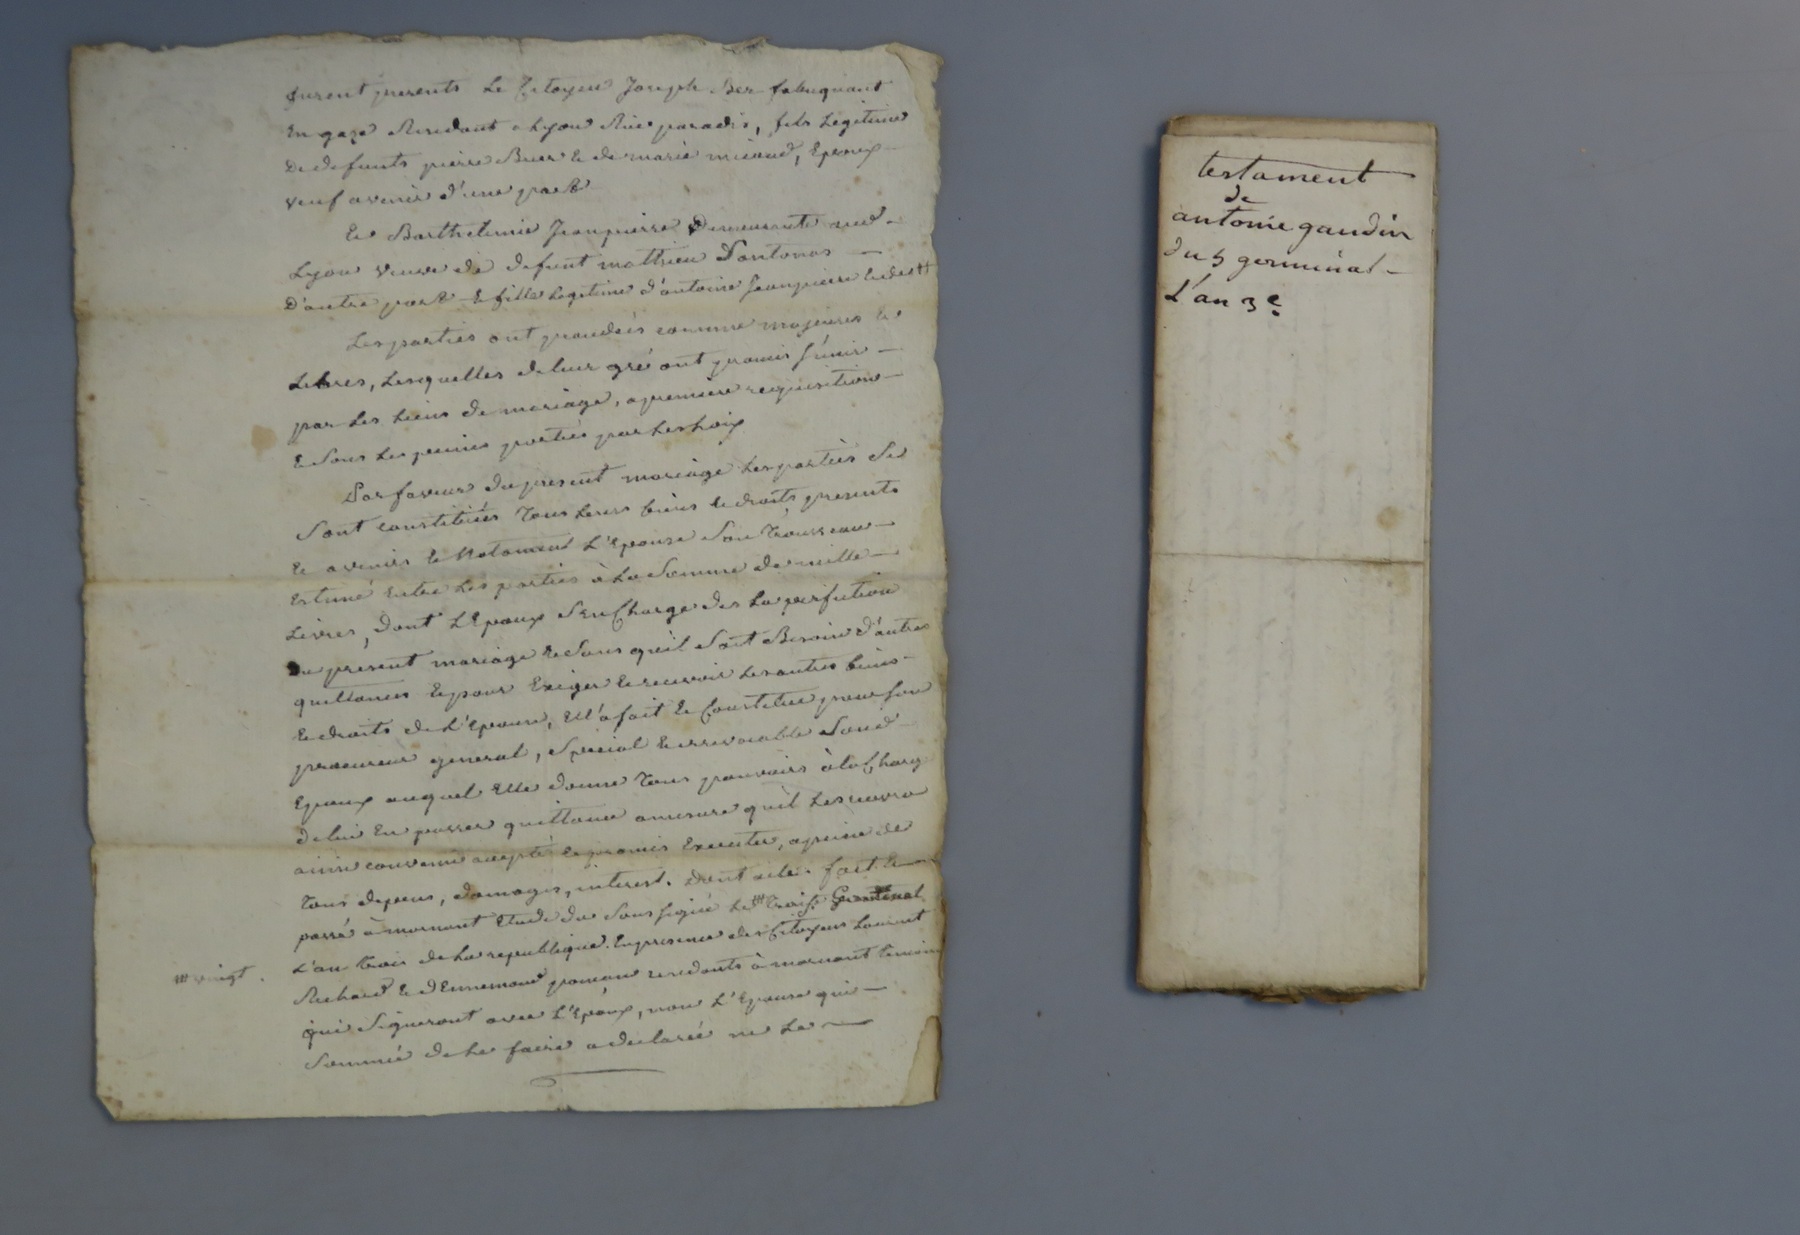 furent presents Le Citoyen Joseph Ber fabriquant
En gaze Residant a Lyon Rüe paradis, fils Légitime
De defunts pierre Buer & de marie micaud, Epoux
veuf avenir d'une part
Et Barthelemie Jeanpierre Demeurante aud.
Lyon veuve de defunt mathieu
D'autre part & fille Legitime d'antoine Jeanpierre
Les parties ont procedés comme majeures &
Libres, Lesquelles de leur gré ont promis s'unir
par Les Liens de mariage, a premiere requisition
& Sous Les peines portées par Les Loix
En faveur du present mariage Les parties Se
Sont constitués Tous Leurs biens & droits presents
& avenir & Notament L'Epouse Son Trousseau
Estimé Entre Les parties à La Somme de mille
Livres, Dont L'Epoux S'En Charge des La perfection
Du present mariage & Sans qu'il Soit Besoin d'autres
quittances & pour Exiger & recevoir Les autres biens
& droits de L'Epouse, Ell'a fait & Constitue pour Son
procureur general, Special & irrevocable Sond.
Epoux auquel Elle donne Tous pouvoirs à la Charg
de lui En passer quittance amesure qu'il Les recevra
ainsi convenu accepté & promis Executer, a peine de
Tous depens, domages, interest. Dont acte. fait &
passé à mornant Etude du Soussigné Le Trois Germinal
L'an Trois de La republique. En presence des Citoyens Laurent
vingt.
Richard & d'Ennemond residants à mornant temoins
qui Signeront avec L'Epoux, non L'Epouse qui
Sommée de Le faire a declarée ne Le
testament
de
antoine gaudin
du 5 germinal
L'an 3e